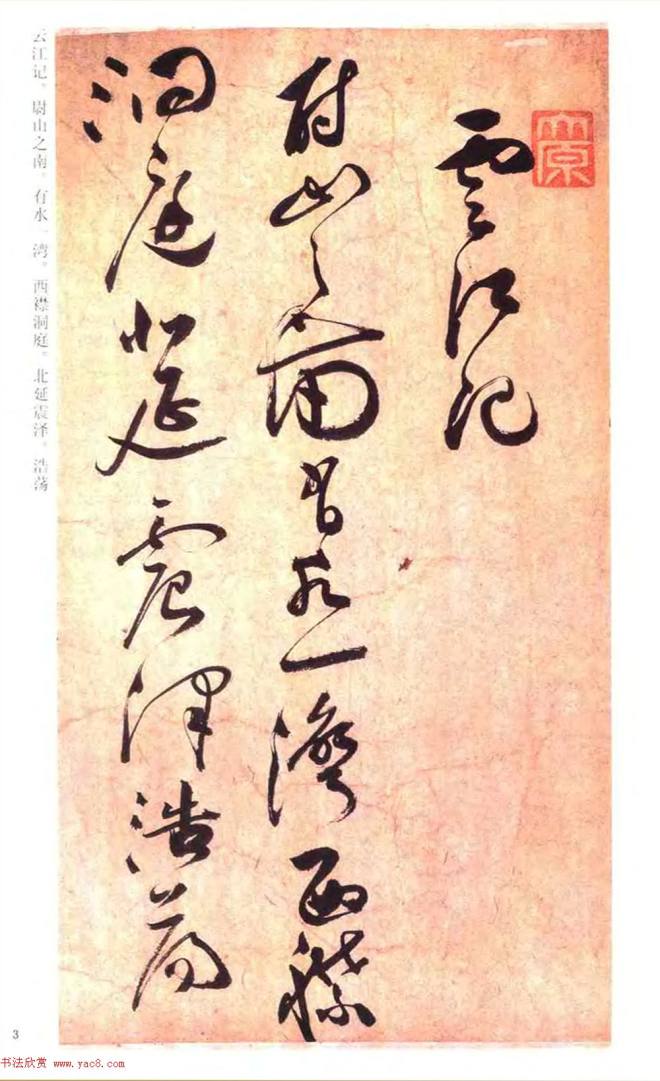 雲江記
尉山之南有水一灣西襟
洞庭北延震澤浩蕩
云江记。尉山之南。有水一湾。西襟洞庭。北延震泽。浩荡
3
书法欣赏 www.yac8.com